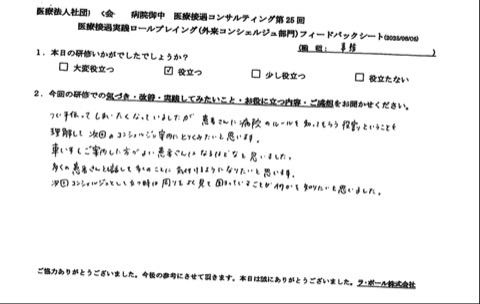 医療法人社団 〈会 病院御中 医療接遇コンサルティング第25回
医療接遇実践ロールプレイング(外来コンシェルジュ部門)フィードバックシート(2025/06/05)
(職種: 事務 )
1.本日の研修いかがでしたでしょうか?
□ 大変役立つ ☑ 役立つ □ 少し役立つ □ 役立たない
2.今回の研修での気づき・改善・実践してみたいこと・お役に立つ内容・ご感想をお聞かせください。
つい手伝ってしまいたくなっていましたが 患者さんに病院のルールを知ってもらう役割ということを
理解して 次回のコンシェルジュ案内に したいと思います。
車いすもご案内した方がよい患者さんに なるほどなと思いました。
多くの患者さんと話して多くのことに気付けるようになりたいと思います。
次回コンシェルジュとして立つ時は周りをよく見て困っていることが何かを知りたいと思いました。
ご協力ありがとうございました。今後の参考にさせて頂きます。本日は誠にありがとうございました。ラ・ポール株式会社